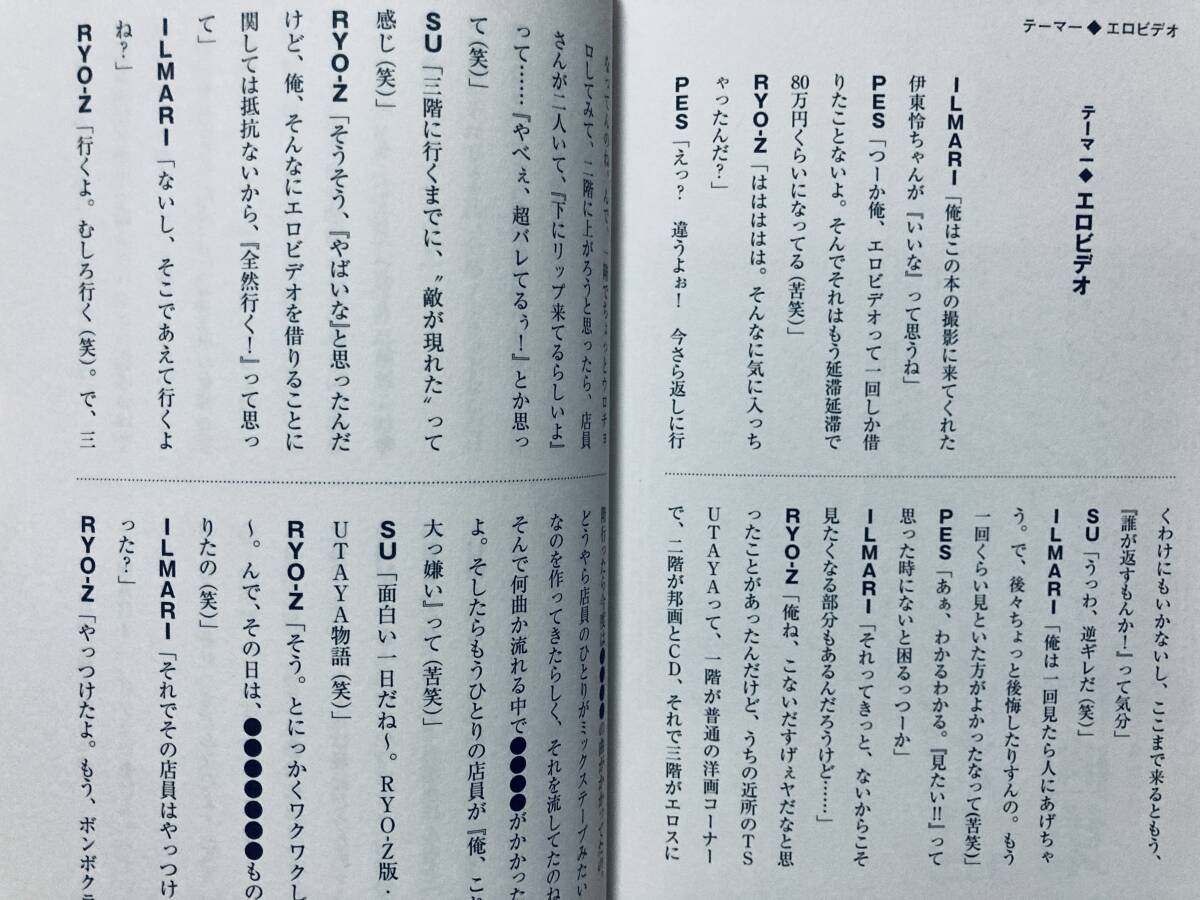 テーマー◆エロビデオ
テーマー◆エロビデオ
ILMARI「俺はこの本の撮影に来てくれた
伊東怜ちゃんが『いいな』って思うね」
PES「つーか俺、エロビデオって一回しか借
りたことないよ。そんでそれはもう延滞延滞で
80万円くらいになってる(苦笑)」
RYO-Z「はははは。そんなに気に入っち
ゃったんだ?」
PES「えっ? 違うよぉ! 今さら返しに行
くわけにもいかないし、ここまで来るともう、
『誰が返すもんか!』って気分」
SU「うっわ、逆ギレだ(笑)」
ILMARI「俺は一回見たら人にあげちゃ
う。で、後々ちょっと後悔したりすんの。もう
一回くらい見といた方がよかったなって(苦笑)」
PES「あぁ、わかるわかる。『見たい!!』って
思った時にないと困るっつーか」
ILMARI「それってきっと、ないからこそ
見たくなる部分もあるんだろうけど……」
RYO-Z「俺ね、こないだすげぇヤだなと思
ったことがあったんだけど、うちの近所のTS
UTAYAって、一階が普通の洋画コーナー
で、二階が邦画とCD、それで三階がエロスに
なってんのね。んで、一階でちょっとウロチョ
ロしてみて、二階に上がろうと思ったら、店員
さんが二人いて、『下にリップ来てるらしいよ』
って……『やべぇ、超バレてるぅ!』とか思っ
て(笑)」
SU「三階に行くまでに、〝敵が現れた〟って
感じ(笑)」
RYO-Z「そうそう、『やばいな』と思ったんだ
けど、俺、そんなにエロビデオを借りることに
関しては抵抗ないから、『全然行く!』って思っ
て」
ILMARI「ないし、そこであえて行くよ
ね?」
RYO-Z「行くよ。むしろ行く(笑)。で、三
階行ったら今度は●●●●の曲がかかってたが、
どうやら店員のひとりがミックステープみたい
なのを作ってきたらしく、それを流してたのね
そんで何曲か流れる中で●●●●がかかった
よ。そしたらもうひとりの店員が『俺、こ
大っ嫌い』って(苦笑)」
SU「面白い一日だね〜。RYO-Z版・
UTAYA物語(笑)」
RYO-Z「そう。とにっかくワクワクし
〜。んで、その日は、●●●●●●●もの
りたの(笑)」
ILMARI「それでその店員はやっつけ
った?」
RYO-Z「やっつけたよ。もう、ボンボクラ